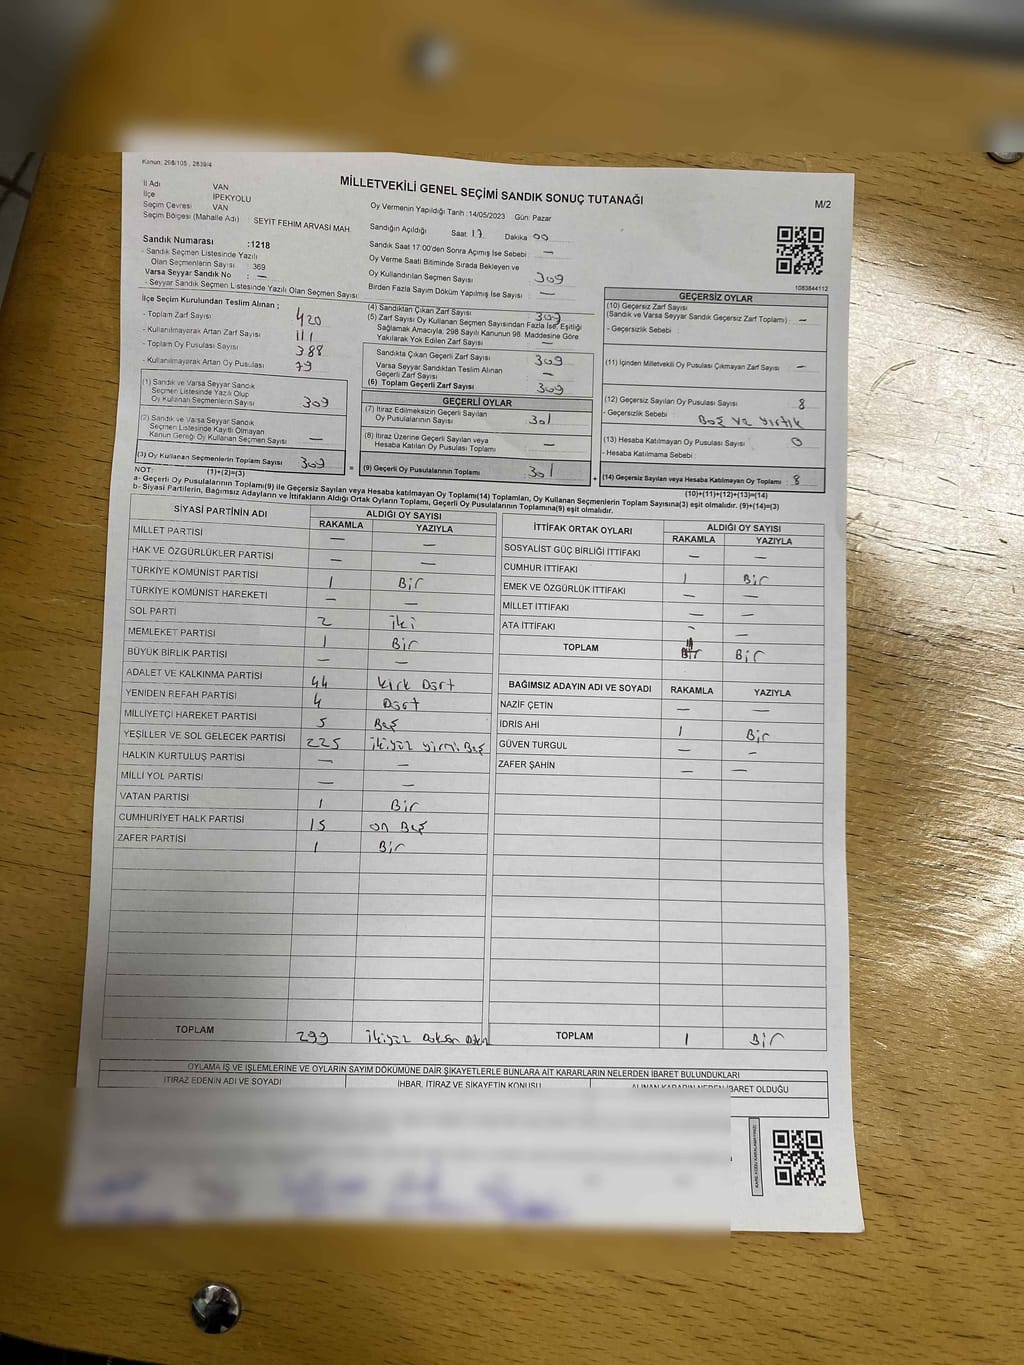 Kanun, 298/105 , 2839/4
MİLLETVEKİLİ GENEL SEÇİMİ SANDIK SONUÇ TUTANAĞI
M/2
İl Adı VAN
İlçe İPEKYOLU
Seçim Çevresi VAN
Seçim Bölgesi (Mahalle Adı) : SEYİT FEHİM ARVASİ MAH.
Oy Vermenin Yapıldığı Tarih :14/05/2023 Gün: Pazar
Sandığın Açıldığı Saat 17 Dakika 00
Sandık Saat 17:00'den Sonra Açılmış İse Sebebi : —
Oy Verme Saati Bitiminde Sırada Bekleyen ve
Oy Kullandırılan Seçmen Sayısı 309
Birden Fazla Sayım Döküm Yapılmış İse Sayısı —
Sandık Numarası :1218
- Sandık Seçmen Listesinde Yazılı
Olan Seçmenlerin Sayısı : 369
Varsa Seyyar Sandık No : —
- Seyyar Sandık Seçmen Listesinde Yazılı Olan Seçmen Sayısı:
1083844112
İlçe Seçim Kurulundan Teslim Alınan ;
- Toplam Zarf Sayısı 420
- Kullanılmayarak Artan Zarf Sayısı 111
- Toplam Oy Pusulası Sayısı 388
- Kullanılmayarak Artan Oy Pusulası 79
(1) Sandık ve Varsa Seyyar Sandık
Seçmen Listesinde Yazılı Olup
Oy Kullanan Seçmenlerin Sayısı 309
(2) Sandık ve Varsa Seyyar Sandık
Seçmen Listesinde Kayıtlı Olmayan
Kanun Gereği Oy Kullanan Seçmen Sayısı —
(3) Oy Kullanan Seçmenlerin Toplam Sayısı 309
(1)+(2)=(3)
(4) Sandıktan Çıkan Zarf Sayısı 309
(5) Zarf Sayısı Oy Kullanan Seçmen Sayısından Fazla İse, Eşitliği
Sağlamak Amacıyla, 298 Sayılı Kanunun 98. Maddesine Göre
Yakılarak Yok Edilen Zarf Sayısı —
Sandıkta Çıkan Geçerli Zarf Sayısı 309
Varsa Seyyar Sandıktan Teslim Alınan
Geçerli Zarf Sayısı —
(6) Toplam Geçerli Zarf Sayısı 309
GEÇERLİ OYLAR
(7) İtiraz Edilmeksizin Geçerli Sayılan
Oy Pusulalarının Sayısı 301
(8) İtiraz Üzerine Geçerli Sayılan veya
Hesaba Katılan Oy Pusulası Toplamı —
= (9) Geçerli Oy Pusulalarının Toplamı 301 +
GEÇERSİZ OYLAR
(10) Geçersiz Zarf Sayısı
(Sandık ve Varsa Seyyar Sandık Geçersiz Zarf Toplamı) : —
- Geçersizlik Sebebi :
(11) İçinden Milletvekili Oy Pusulası Çıkmayan Zarf Sayısı : —
(12) Geçersiz Sayılan Oy Pusulası Sayısı : 8
- Geçersizlik Sebebi : Boş ve yırtık
(13) Hesaba Katılmayan Oy Pusulası Sayısı : 0
- Hesaba Katılmama Sebebi :
(14) Geçersiz Sayılan veya Hesaba Katılmayan Oy Toplamı : 8
(10)+(11)+(12)+(13)=(14)
NOT:
a- Geçerli Oy Pusulalarının Toplamı(9) ile Geçersiz Sayılan veya Hesaba Katılmayan Oy Toplamı(14) Toplamları, Oy Kullanan Seçmenlerin Toplam Sayısına(3) eşit olmalıdır. (9)+(14)=(3)
b- Siyasi Partilerin, Bağımsız Adayların ve İttifakların Aldığı Ortak Oyların Toplamı, Geçerli Oy Pusulalarının Toplamına(9) eşit olmalıdır.
SİYASİ PARTİNİN ADI ALDIĞI OY SAYISI
RAKAMLA YAZIYLA
MİLLET PARTİSİ — —
HAK VE ÖZGÜRLÜKLER PARTİSİ — —
TÜRKİYE KOMÜNİST PARTİSİ 1 Bir
TÜRKİYE KOMÜNİST HAREKETİ — —
SOL PARTİ 2 iki
MEMLEKET PARTİSİ 1 Bir
BÜYÜK BİRLİK PARTİSİ — —
ADALET VE KALKINMA PARTİSİ 44 Kırk Dört
YENİDEN REFAH PARTİSİ 4 Dört
MİLLİYETÇİ HAREKET PARTİSİ 5 Beş
YEŞİLLER VE SOL GELECEK PARTİSİ 225 ikiyüz yirmi Beş
HALKIN KURTULUŞ PARTİSİ — —
MİLLİ YOL PARTİSİ — —
VATAN PARTİSİ 1 Bir
CUMHURİYET HALK PARTİSİ 15 on Beş
ZAFER PARTİSİ 1 Bir
TOPLAM 299 ikiyüz Doksan
İTTİFAK ORTAK OYLARI ALDIĞI OY SAYISI
RAKAMLA YAZIYLA
SOSYALİST GÜÇ BİRLİĞİ İTTİFAKI — —
CUMHUR İTTİFAKI 1 Bir
EMEK VE ÖZGÜRLÜK İTTİFAKI — —
MİLLET İTTİFAKI — —
ATA İTTİFAKI - —
TOPLAM Bir Bir
BAĞIMSIZ ADAYIN ADI VE SOYADI RAKAMLA YAZIYLA
NAZİF ÇETİN — —
İDRİS AHİ 1 Bir
GÜVEN TURGUL — -
ZAFER ŞAHİN — —
TOPLAM 1 Bir
OYLAMA İŞ VE İŞLEMLERİNE VE OYLARIN SAYIM DÖKÜMÜNE DAİR ŞİKAYETLERLE BUNLARA AİT KARARLARIN NELERDEN İBARET BULUNDUKLARI
İTİRAZ EDENİN ADI VE SOYADI İHBAR, İTİRAZ VE ŞİKAYETİN KONUSU ALINAN KARARIN NEDEN İBARET OLDUĞU